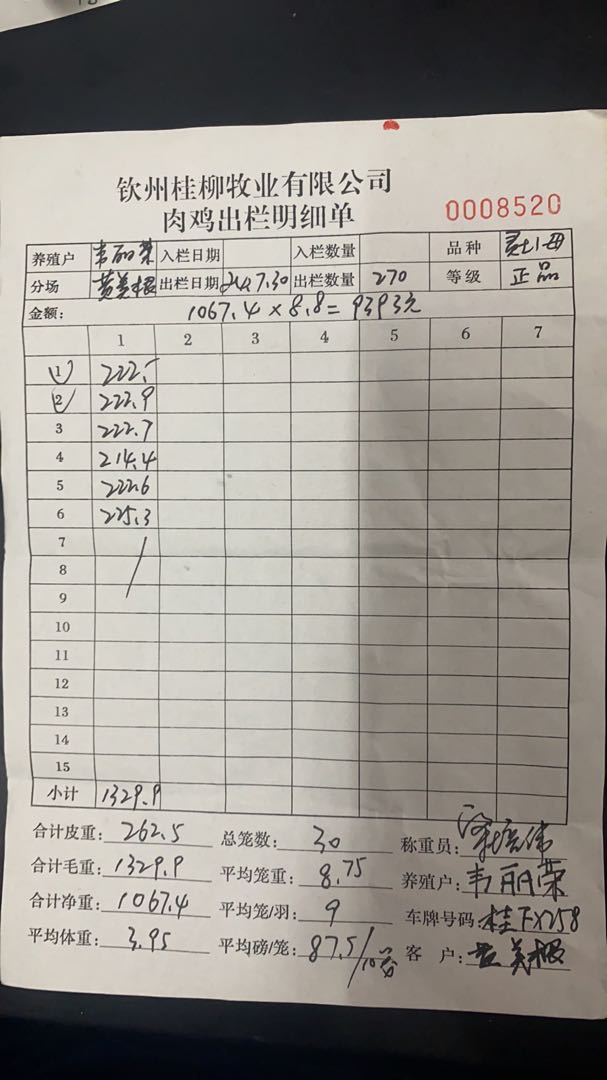 钦州桂柳牧业有限公司
肉鸡出栏明细单
0008520
养殖户 韦丽荣 入栏日期 入栏数量 品种
分场 黄美根 出栏日期 24.7.30 出栏数量 270 等级 正品
金额: 1067.4 × 8.8 = 9393元
1 2 3 4 5 6 7
1 222.5
2 222.9
3 222.7
4 214.4
5 222.6
6 225.3
7
8
9
10
11
12
13
14
15
小计 1329.9
合计皮重: 262.5 总笼数: 30 称重员:
合计毛重: 1329.9 平均笼重: 8.75 养殖户: 韦丽荣
合计净重: 1067.4 平均笼/羽: 9 车牌号码: 桂FX258
平均体重: 3.95 平均磅/笼: 87.5/10 客 户: 黄美根